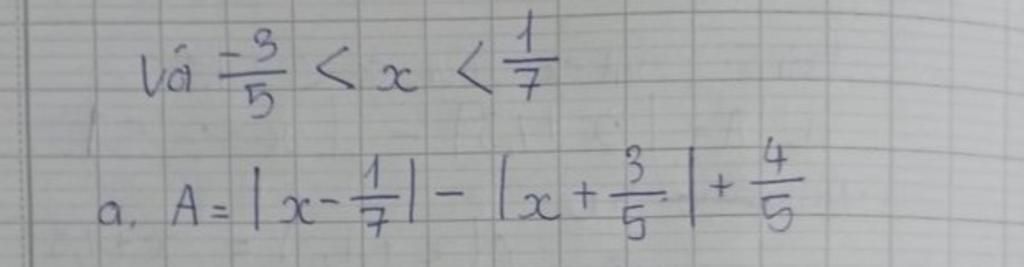 Với $\frac{-3}{5} < x < \frac{1}{7}$
a. $A = \left| x - \frac{1}{7} \right| - \left| x + \frac{3}{5} \right| + \frac{4}{5}$